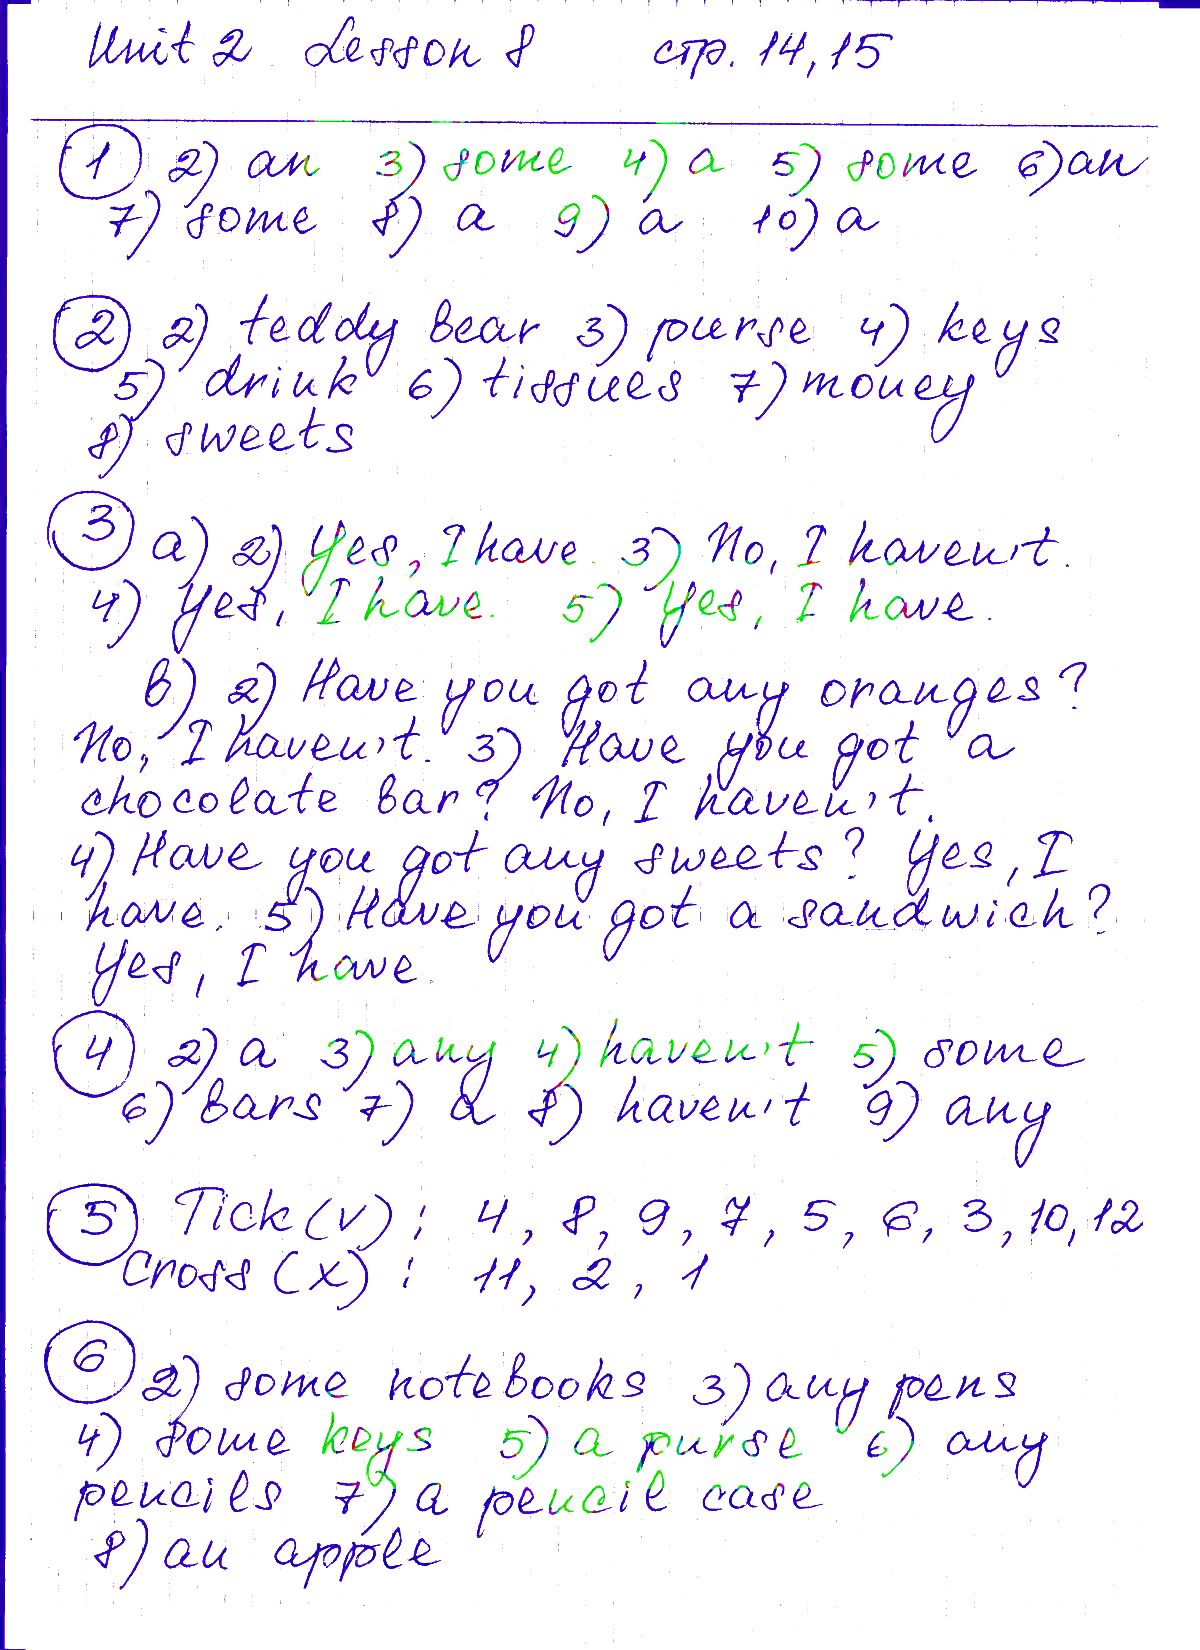 Unit 2 Lesson 8 стр. 14, 15
1 2) an 3) some 4) a 5) some 6) an
7) some 8) a 9) a 10) a
2 2) teddy bear 3) purse 4) keys
5) drink 6) tissues 7) money
8) sweets
3 a) 2) Yes, I have. 3) No, I haven't.
4) Yes, I have. 5) Yes, I have.
b) 2) Have you got any oranges?
No, I haven't. 3) Have you got a
chocolate bar? No, I haven't.
4) Have you got any sweets? Yes, I
have. 5) Have you got a sandwich?
Yes, I have.
4 2) a 3) any 4) haven't 5) some
6) bars 7) a 8) haven't 9) any
5 Tick (v): 4, 8, 9, 7, 5, 6, 3, 10, 12
Cross (x): 11, 2, 1
6 2) some notebooks 3) any pens
4) some keys 5) a purse 6) any
pencils 7) a pencil case
8) an apple